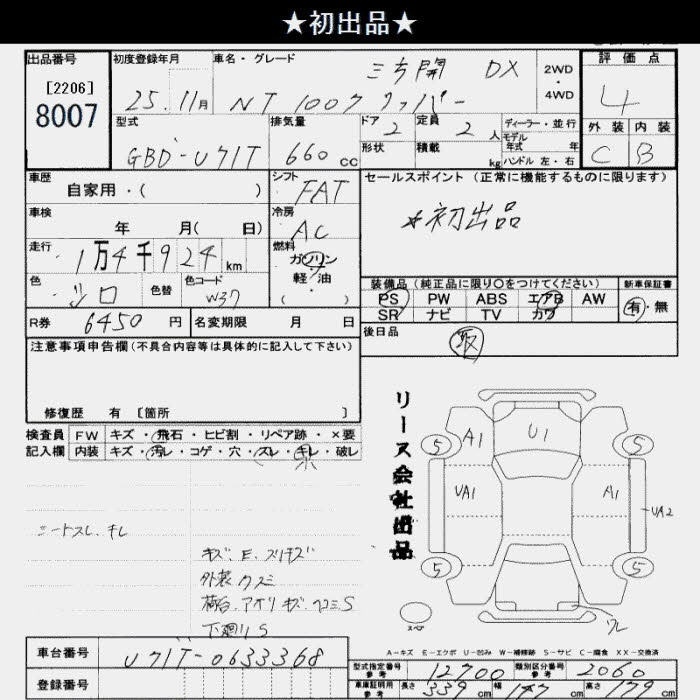 ★初出品★
出品番号 初度登録年月 車名・グレード 三方開 DX 2WD・4WD 評価点
[2206]
8007
25.11月 NT100クリッパー 4
型式 排気量 ドア 2 定員 2人 ディーラー・並行 外装 内装
GBD-U71T 660cc 形状 積載 kg モデル年式 年 ハンドル 左・右 C B
車歴 シフト FAT セールスポイント (正常に機能するものに限ります)
自家用・( )
車検 冷房 AC ★初出品
年 月( 日)
走行 1万4千924km 燃料 ガソリン・軽油・( )
装備品 (純正品に限り○をつけてください) 新車保証書
色 シロ 色替 色コード W37 PS PW ABS エアB AW 有・無
SR ナビ TV カワ
R券 6450円 名変期限 月 日 後日品 取
注意事項申告欄(不具合内容等は具体的に記入して下さい)
修復歴 有 [箇所 ]
リース会社出品
検査員 FW キズ・飛石・ヒビ割・リペア跡・×要
記入欄 内装 キズ・汚レ・コゲ・穴・スレ・キレ・破レ
A1 U1
5 5
UA1 A1 UA2
5 5
シートスレ、キレ
キズ、E、スリキズ
外装クスミ
荷台、アオリ キズ、ヘコミ、S
下廻りS
スペア
A-キズ E-エクボ U-凹み W-補修跡 S-サビ C-腐食 XX-交換済
車台番号 U71T-0633368
登録番号
型式指定番号 参考 12700 類別区分番号 参考 2060
車庫証明用 参考 長さ 339cm 幅 147cm 高さ 179cm